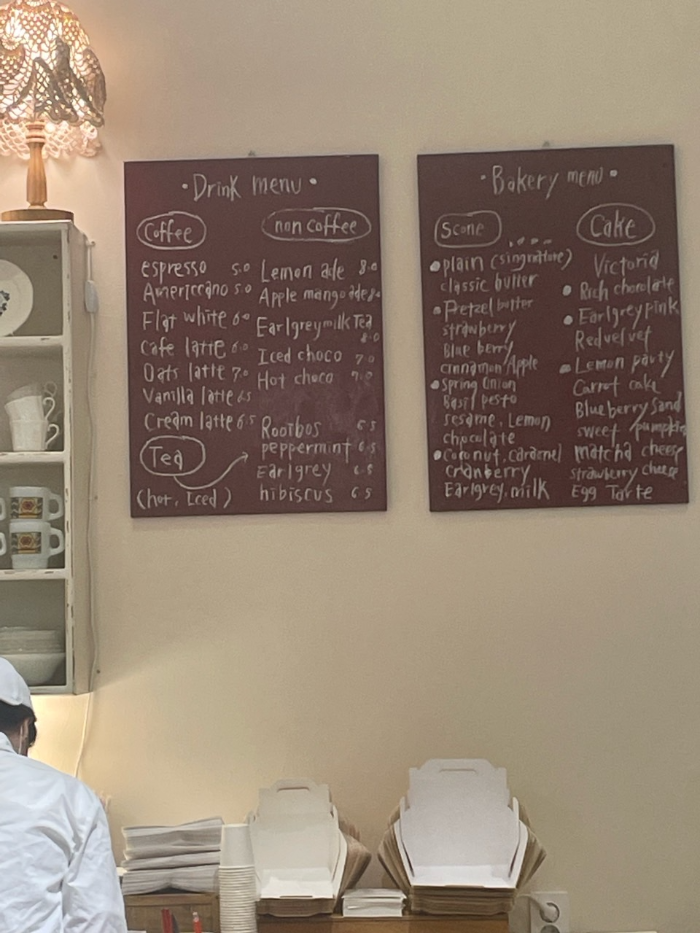 • Drink menu •
Coffee
espresso 5.0
Americcano 5.0
Flat white 6.0
Cafe latte 6.0
Oats latte 7.0
Vanilla latte 6.5
Cream latte 6.5
Tea
(hot, Iced)
non coffee
Lemon ade 8.0
Apple mango ade 8.0
Earlgrey milk Tea
8.0
Iced choco 7.0
Hot choco 7.0
Rooibos 6.5
peppermint 6.5
Earlgrey 6.5
hibiscus 6.5
• Bakery menu •
Scone
• plain (singnature)
classic butter
• Pretzel butter
strawberry
Blue berry
cinnamon/Apple
• Spring Onion
Basil pesto
sesame, Lemon
chocolate
• Coconut, caramel
cranberry
Earlgrey, milk
Cake
Victoria
• Rich chocolate
• Earlgrey pink
Red velvet
• Lemon party
Carrot cake
Blueberry Sand
sweet pumpkin
matcha cheese
strawberry cheese
Egg Tarte